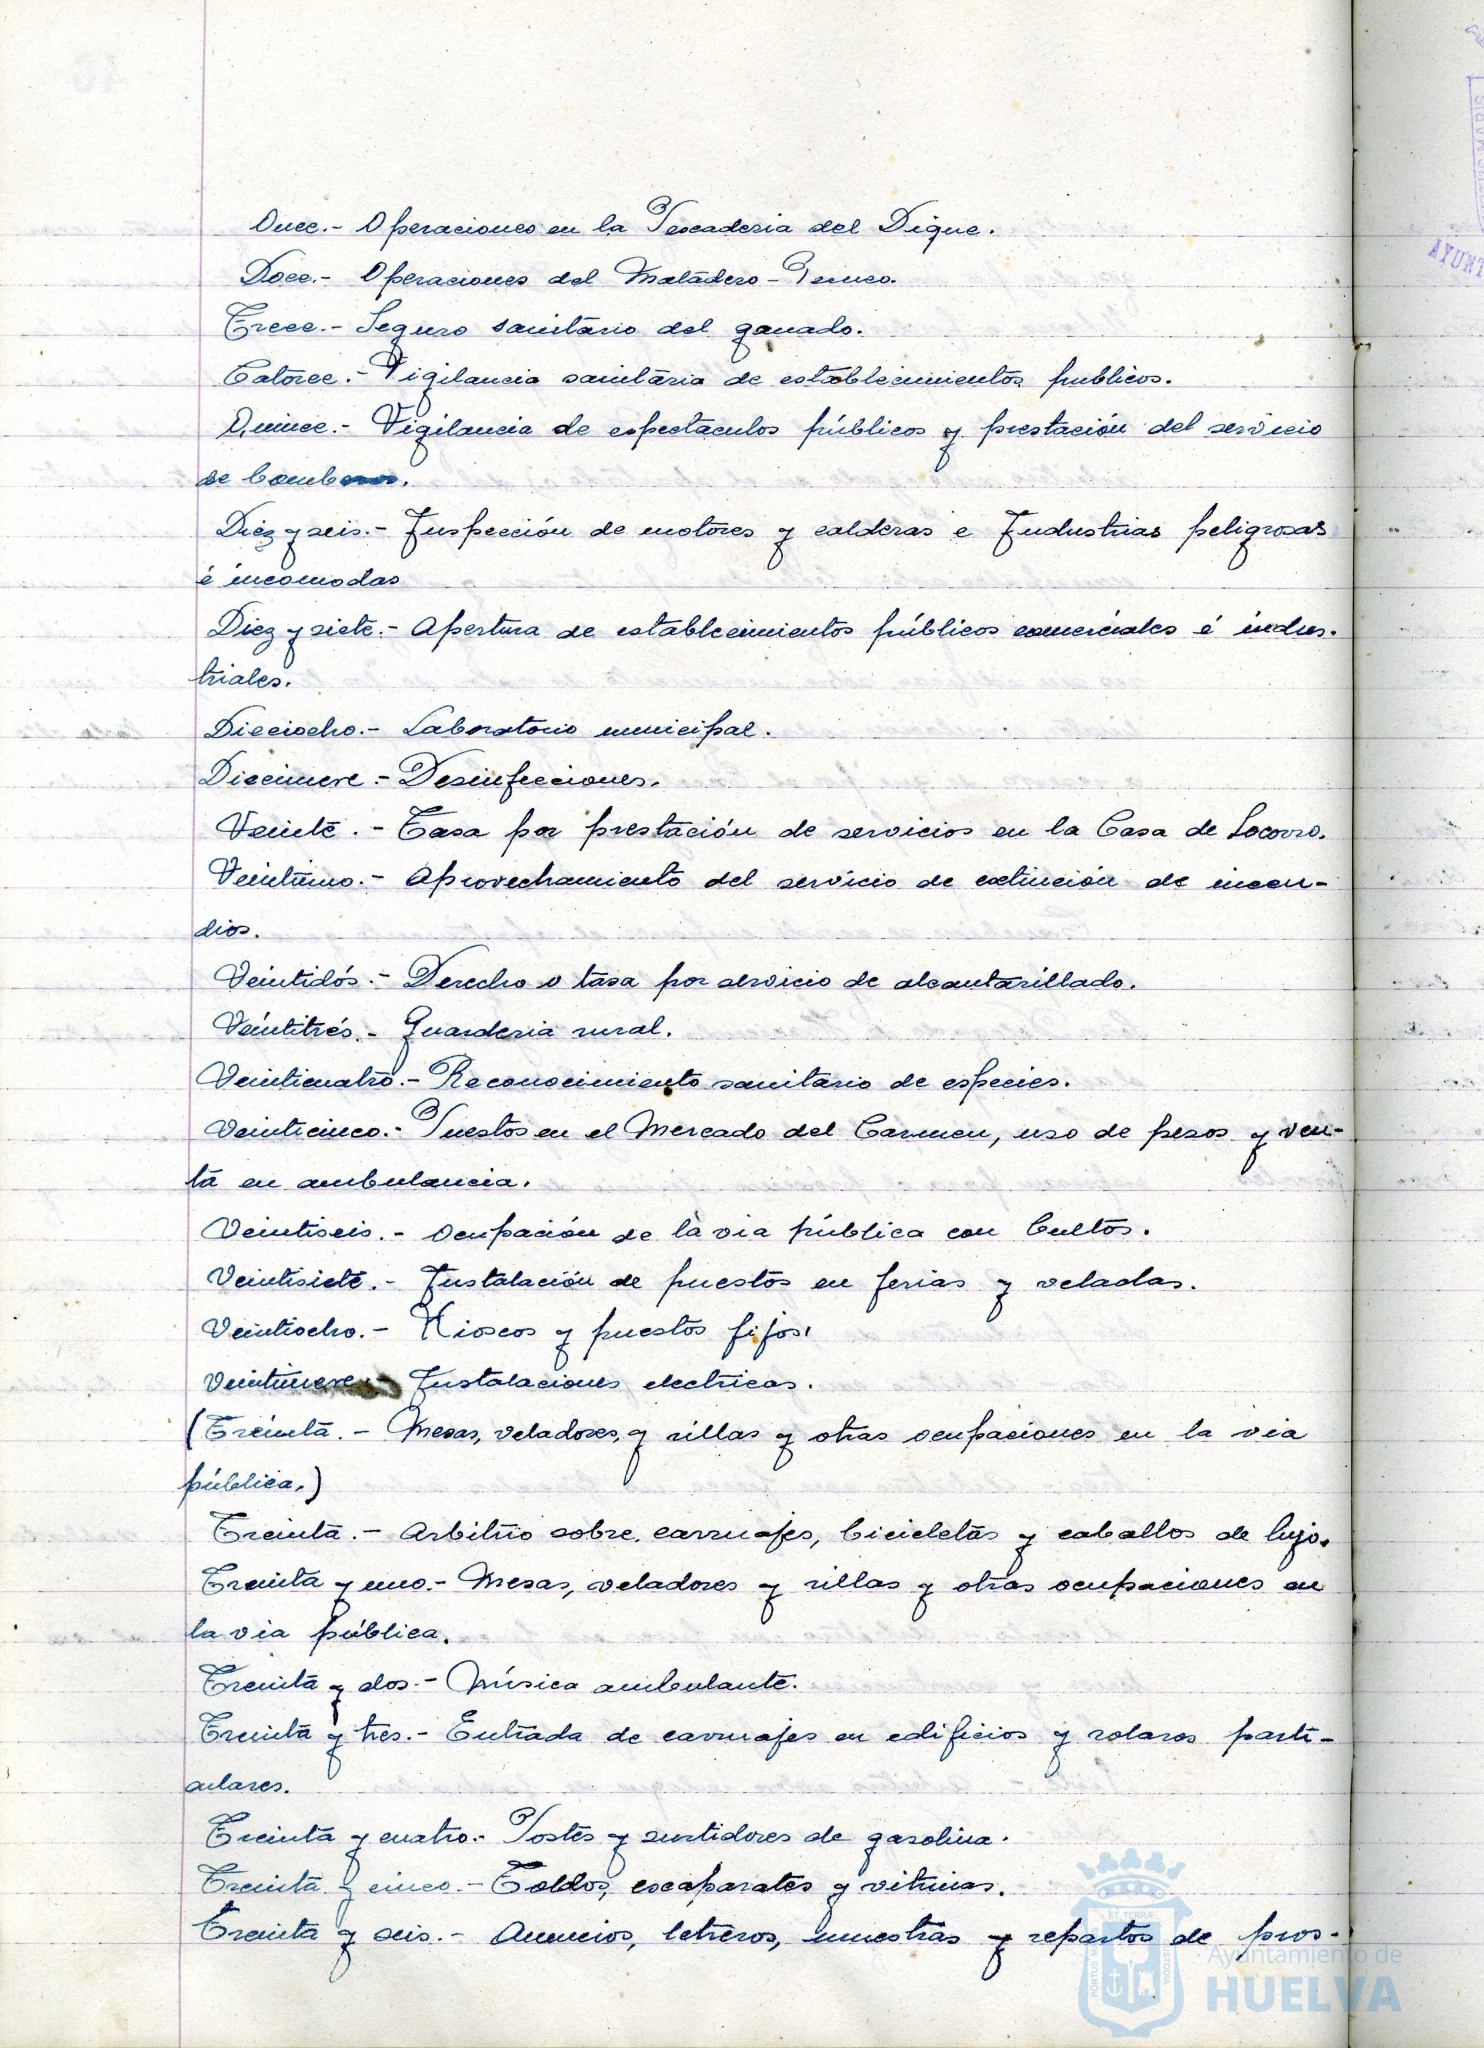 Once.- Operaciones en la Pescaderia del Dique.
Doce.- Operaciones del Matadero-
Trece.- Seguro sanitario del ganado.
Catorce.- Vigilancia sanitaria de establecimientos publicos.
Quince.- Vigilancia de espectaculos públicos y prestación del servicio
de bomberos.
Diez y seis.- Inspección de motores y calderas e Industrias peligrosas
é incomodas
Diez y siete.- Apertura de establecimientos públicos comerciales é indus-
triales.
Dieciocho.- Laboratorio municipal.
Diecinueve.- Desinfecciones.
Veinte.- Tasa por prestación de servicios en la Casa de Socorro.
Veintiuno.- Aprovechamiento del servicio de extinción de incen-
dios.
Veintidós.- Derecho o tasa por servicio de alcantarillado.
Veintitrés.- Guarderia rural.
Veinticuatro.- Reconocimiento sanitario de especies.
Veinticinco.- Puestos en el Mercado del Carmen, uso de pesos y ven-
ta en ambulancia.
Veintiseis.- Ocupación de la via pública con bultos.
Veintisiete.- Instalación de puestos en ferias y veladas.
Veintiocho.- Kioscos y puestos fijos.
Veintinueve.- Instalaciones electricas.
(Treinta.- Mesas, veladores, y sillas y otras ocupaciones en la via
pública.)
Treinta.- Arbitrio sobre carruajes, bicicletas y caballos de lujo.
Treinta y uno.- Mesas, veladores y sillas y otras ocupaciones en
la via pública.
Treinta y dos.- Música ambulante.
Treinta y tres.- Entrada de carruajes en edificios y solares parti-
culares.
Treinta y cuatro.- Postes y surtidores de gasolina.
Treinta y cinco.- Toldos, escaparates y vitrinas.
Treinta y seis.- Anuncios, letreros, muestras y repartos de pros-
Ayuntamiento de
HUELVA
AYUNT